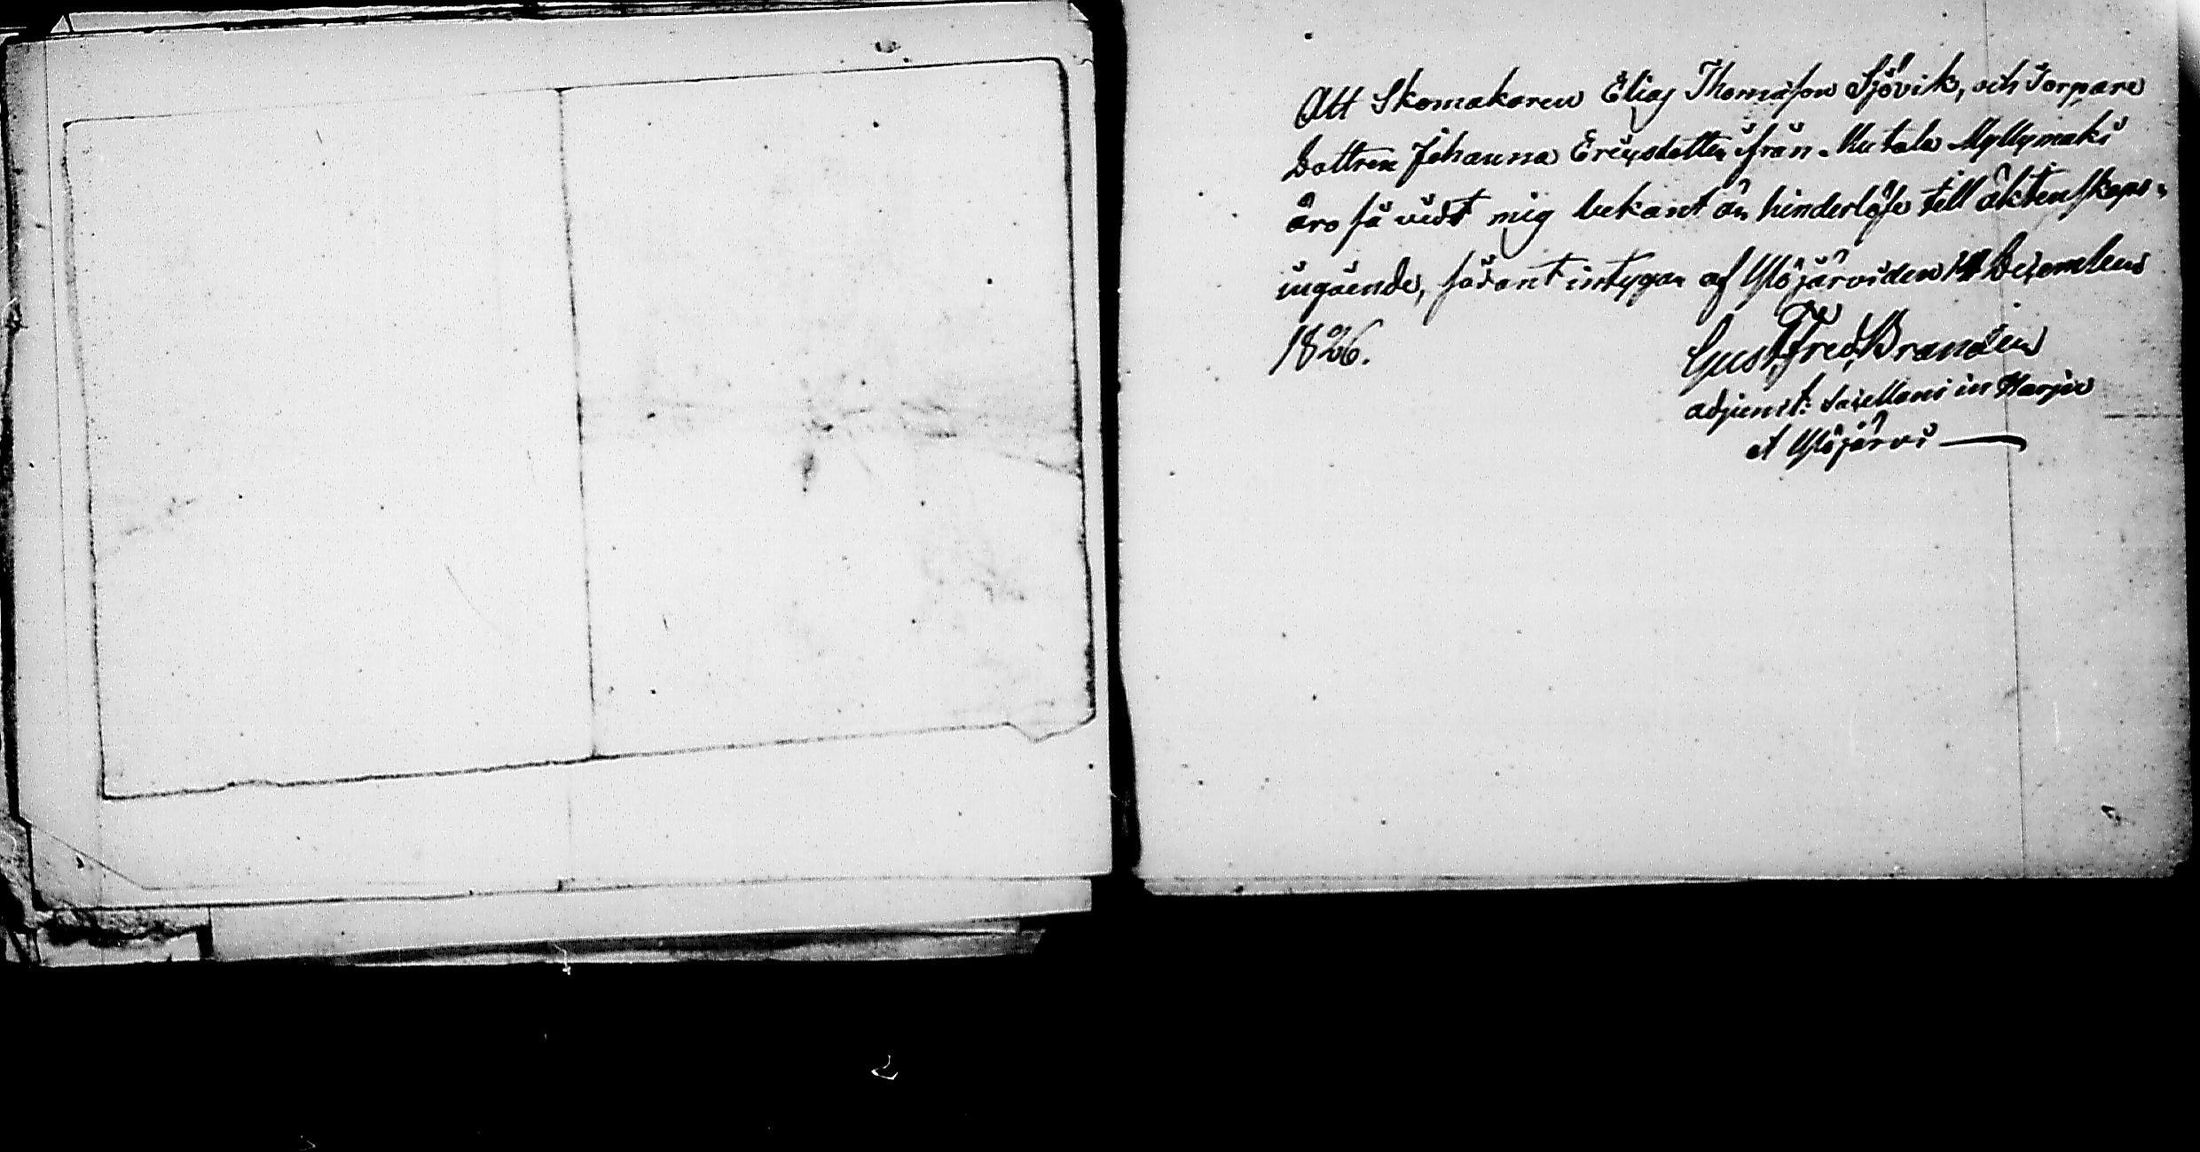 Att Skomakaren Elias Thomasson Sjövik, och Torpare
Dottren Johanna Ericsdotter ifrån Mutala Myllymäki
äro så vidt mig bekant är hinderlöse till äktenskaps-
ingående, sådant intygar af Ylöjärvi den Decembris
1826. Gust Fred Brandein
adjunct: Sacellani in Harju
et Ylöjärvi